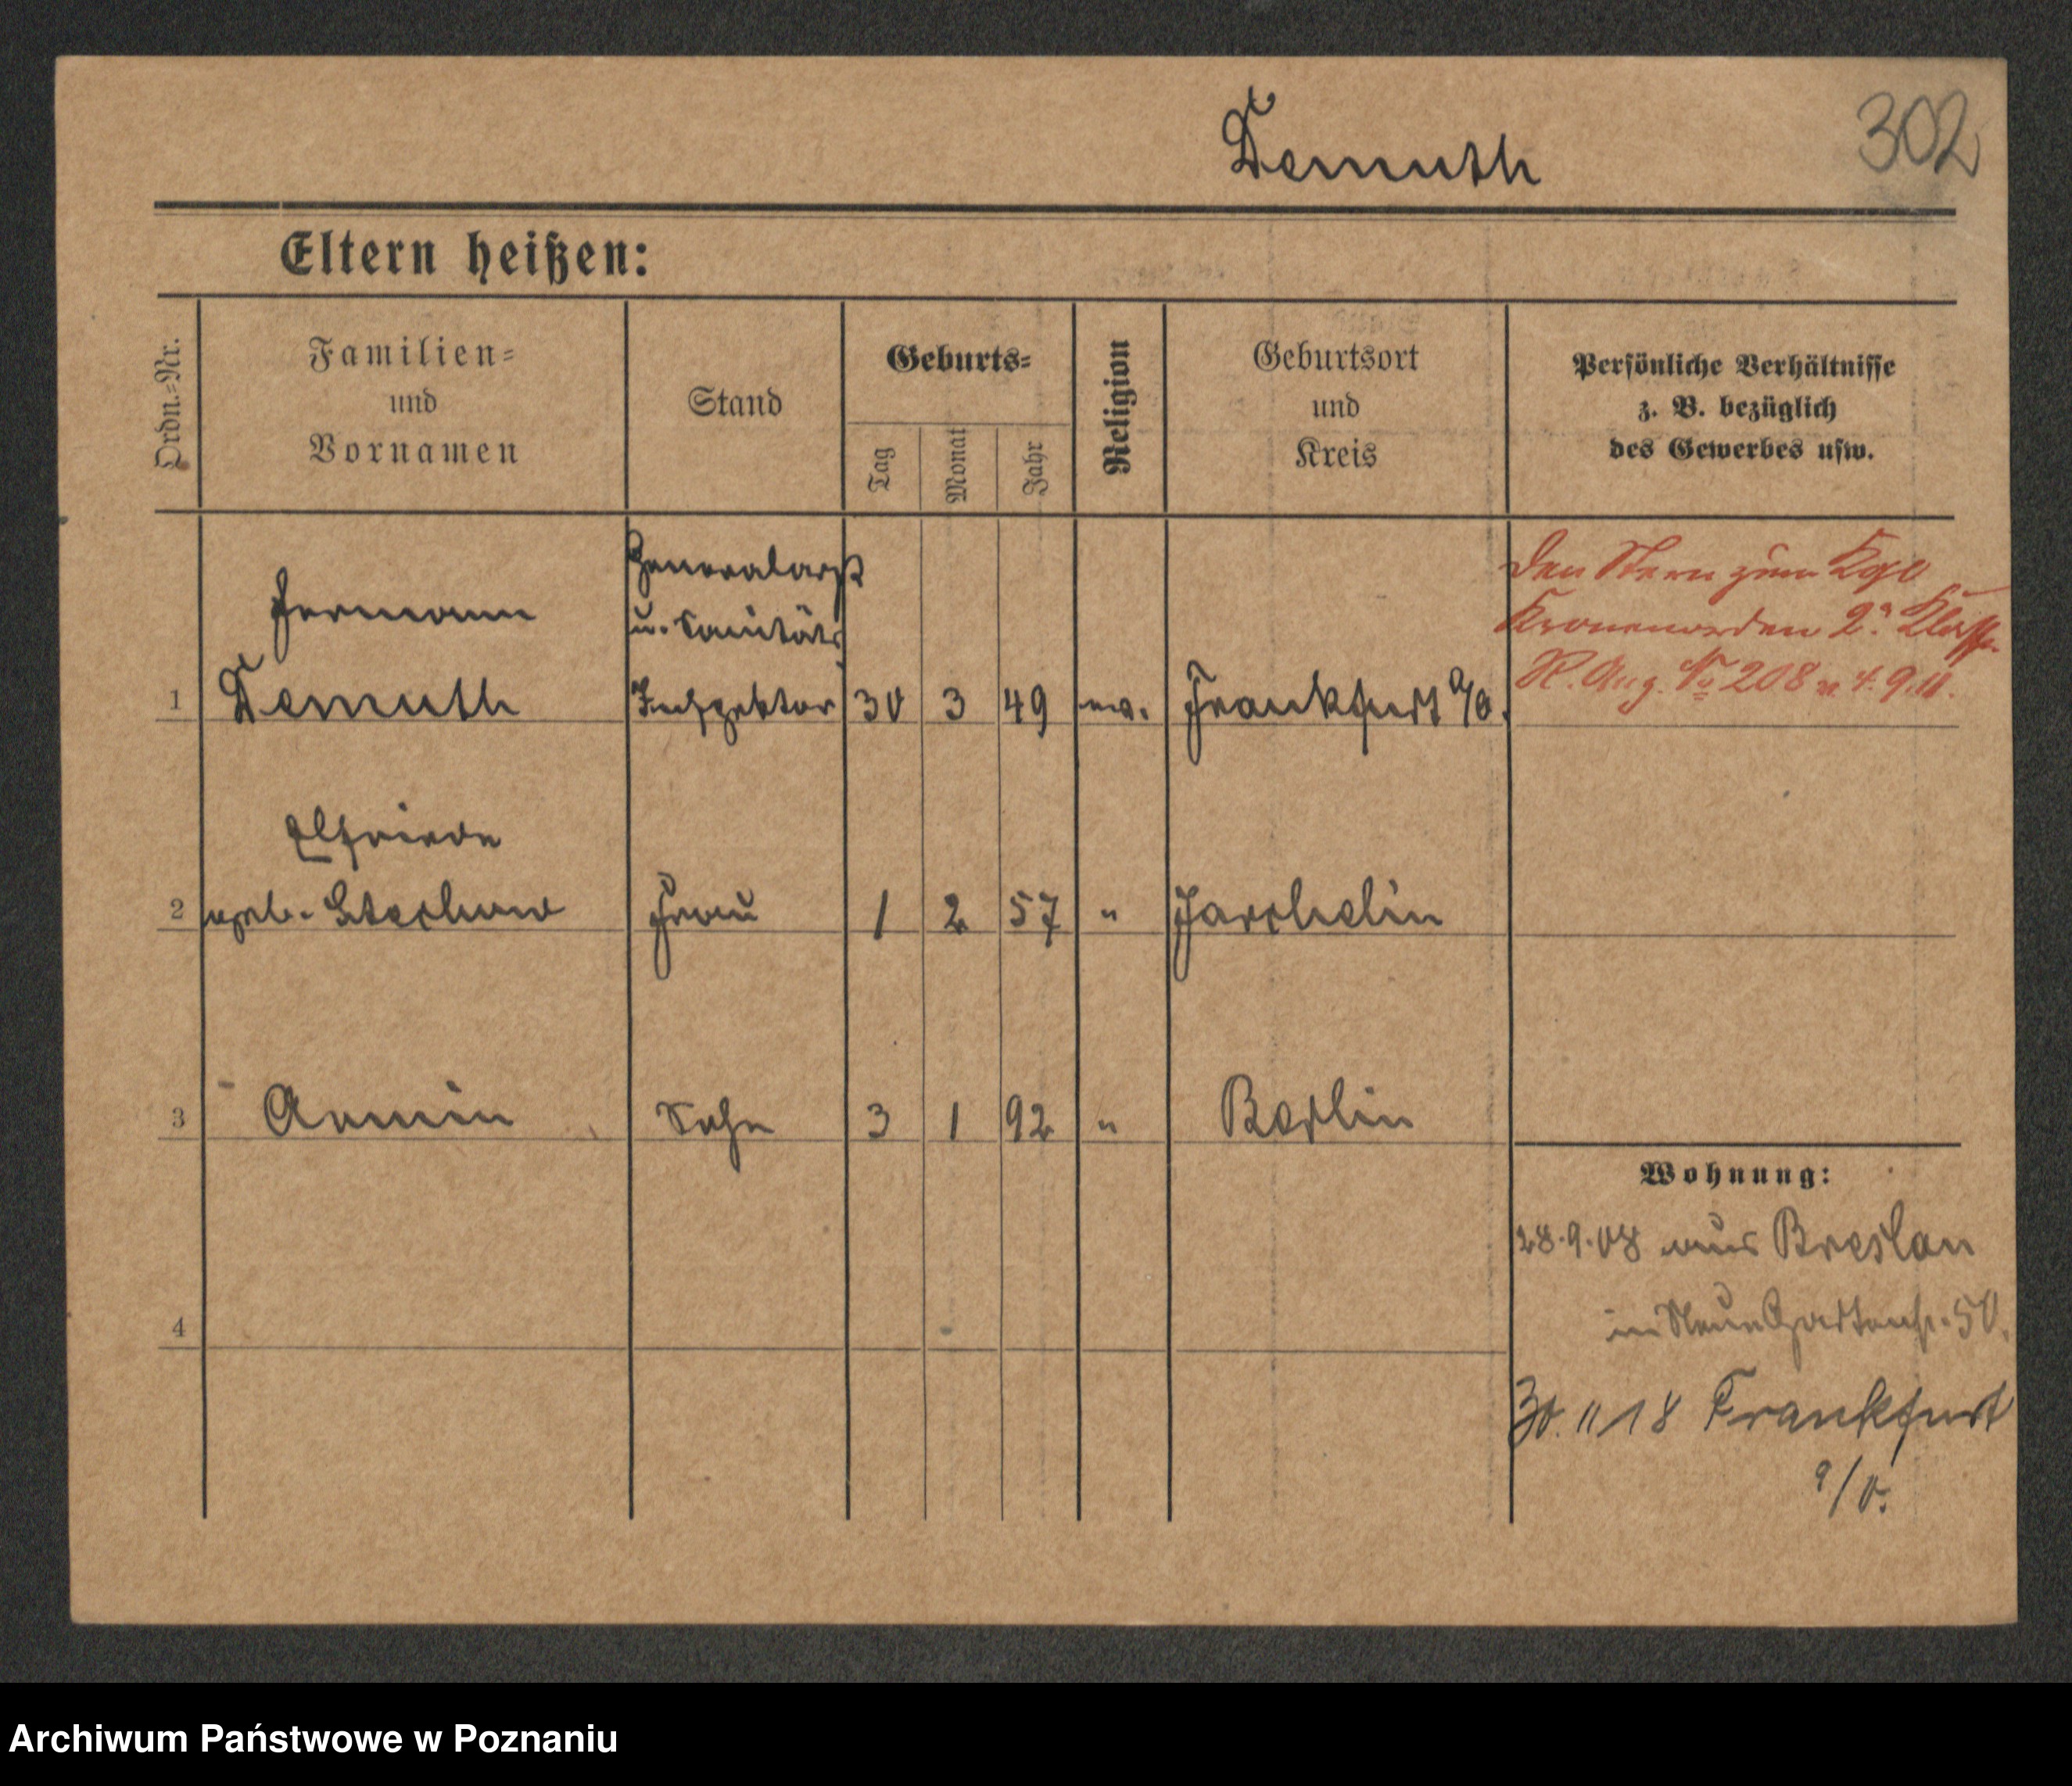 Demuth
302
Eltern heißen:
Ordn.-Nr.
Familien-
und
Vornamen
Stand
Geburts-
Tag
Monat
Jahr
Religion
Geburtsort
und
Kreis
Persönliche Verhältnisse
z. B. bezüglich
des Gewerbes usw.
Hermann
Demuth
Generalarzt
u. Sanitäts
Inspektor
1 30 3 49 ev. Frankfurt a/O.
Den Stern zum Kgl
Kronenorden 2. Klasse
R. Anz. No 208 v. 4.9.11.
Elfriede
2 geb. Stechow Frau 1 2 57 " Jarchelin
3 Armin Sohn 3 1 92 " Berlin
Wohnung:
28.9.08 aus Breslau
in Neue Gartenstr. 50.
4
30.11 18 Frankfurt
a/O.
Archiwum Państwowe w Poznaniu